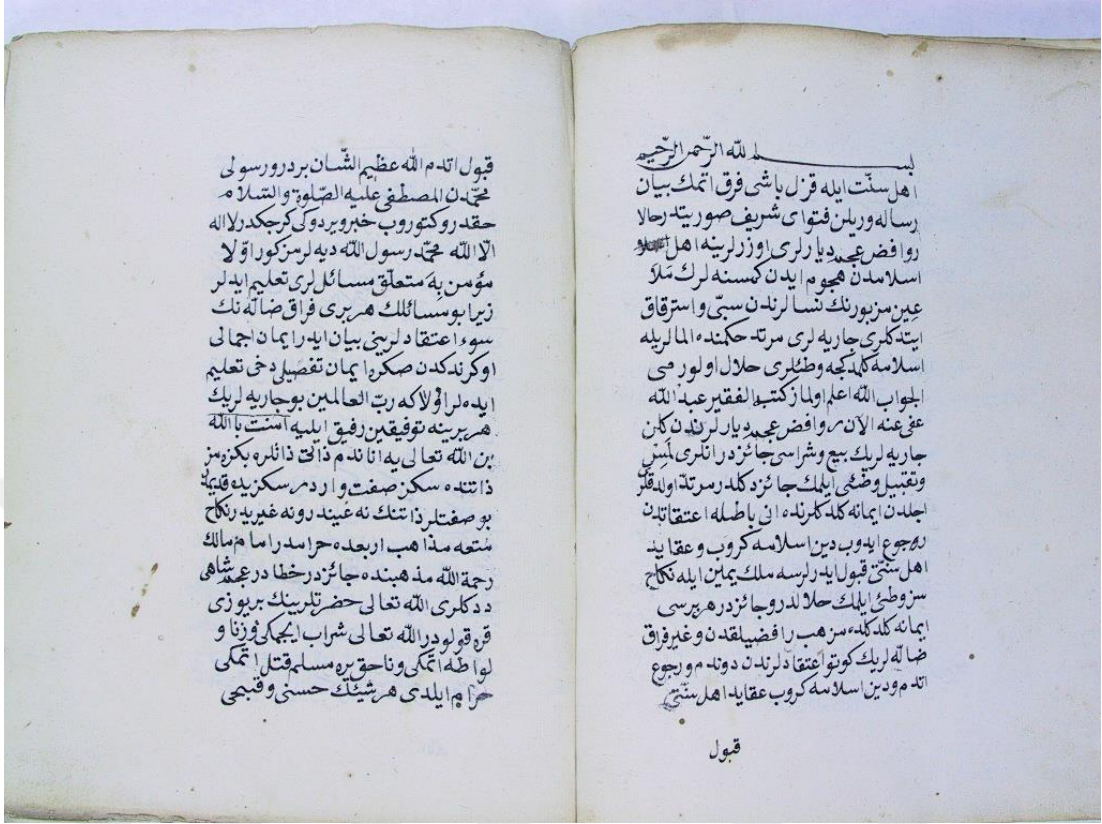 بسم الله الرّحمن الرّحيم
اهل سنّت ايله قزل باشى فرق اتمك بيان
رساله وريلن فتواى شريف صوريتدر حالا
روافض عجم ديارلرى اوزرلرينه اهل
اسلامدن هجوم ايدن كمسنه لرك مَلاَ
عِين مزبورنك نسالرندن سبّى و استرقاق
ايتدكلرى جاريه لرى مرتد حكمنده المالريله
اسلامه كلمدكجه وطئلرى حلال اولور مى
الجواب الله اعلم اولماز كتبه الفقير عبد الله
عفى عنه الآن روافض عجم ديارلرندن كلن
جاريه لريك بيع و شراسى جائزدر انلرى لَمس
وتقبيل وضئى ايلمك جائز دكلدر مرتدّ اولدقلر
اجلدن ايمانه كلدكلرنده انى باطله اعتقاتدن
رجوع ايدوب دين اسلامه كروب و عقايد
اهل سنّتى قبول ايدرلرسه ملك يمين ايله نكاح
سز وطئ ايلمك حلالدر و جائزدر هر برسى
ايمانه كلدكده مزهب رافضيلقدن و غير فراق
ضالّه لريك كوتو اعتقادلرندن دوندم و رجوع
اتدم و دين اسلامه كروب عقايد اهل سنّتى
قبول
قبول اتدم الله عظيم الشّان بردر و رسولى
محمّدن المصطفى عليه الصّلوة والسّلام
حقدر و كتوروب خبر ويردوكى كرجكدر لا اله
الّا الله محمّد رسول الله ديه لر مزكور اوّلا
مؤمن بِهَ متعلّق مسائل لرى تعليم ايدلر
زيرا بو مسائلك هر برى فراق ضاله نك
سوء اعتقادلرينى بيان ايدر ايمان اجمالى
اوكرندكدن صكره ايمان تفصيلى دخى تعليم
ايده لر اوّلا كه ربّ العالمين بو جاريه لريك
هر برينه توفيقين رفيق ايليه آمنت بالله
بن الله تعالى يه اناندم ذاتى ذاتلره بكزه مز
ذاتنده سكز صفت واردر سكزيده قديمدر
بو صفتلر ذاتنك نه عَيندر و نه غيريدر نكاح
مُتعه مذاهب اربعده حرامدر امام مالك
رحمة الله مذهبنده جائزدر خطادر عجم شاهى
ددكلرى الله تعالى حضرتلرينك بر يوزى
قره قولودر الله تعالى شراب ايچمكى و زنا و
لواطه اتمكى و ناحق يره مسلم قتل اتمكى
حرام ايلدى هر شيئك حسنى و قبيحى